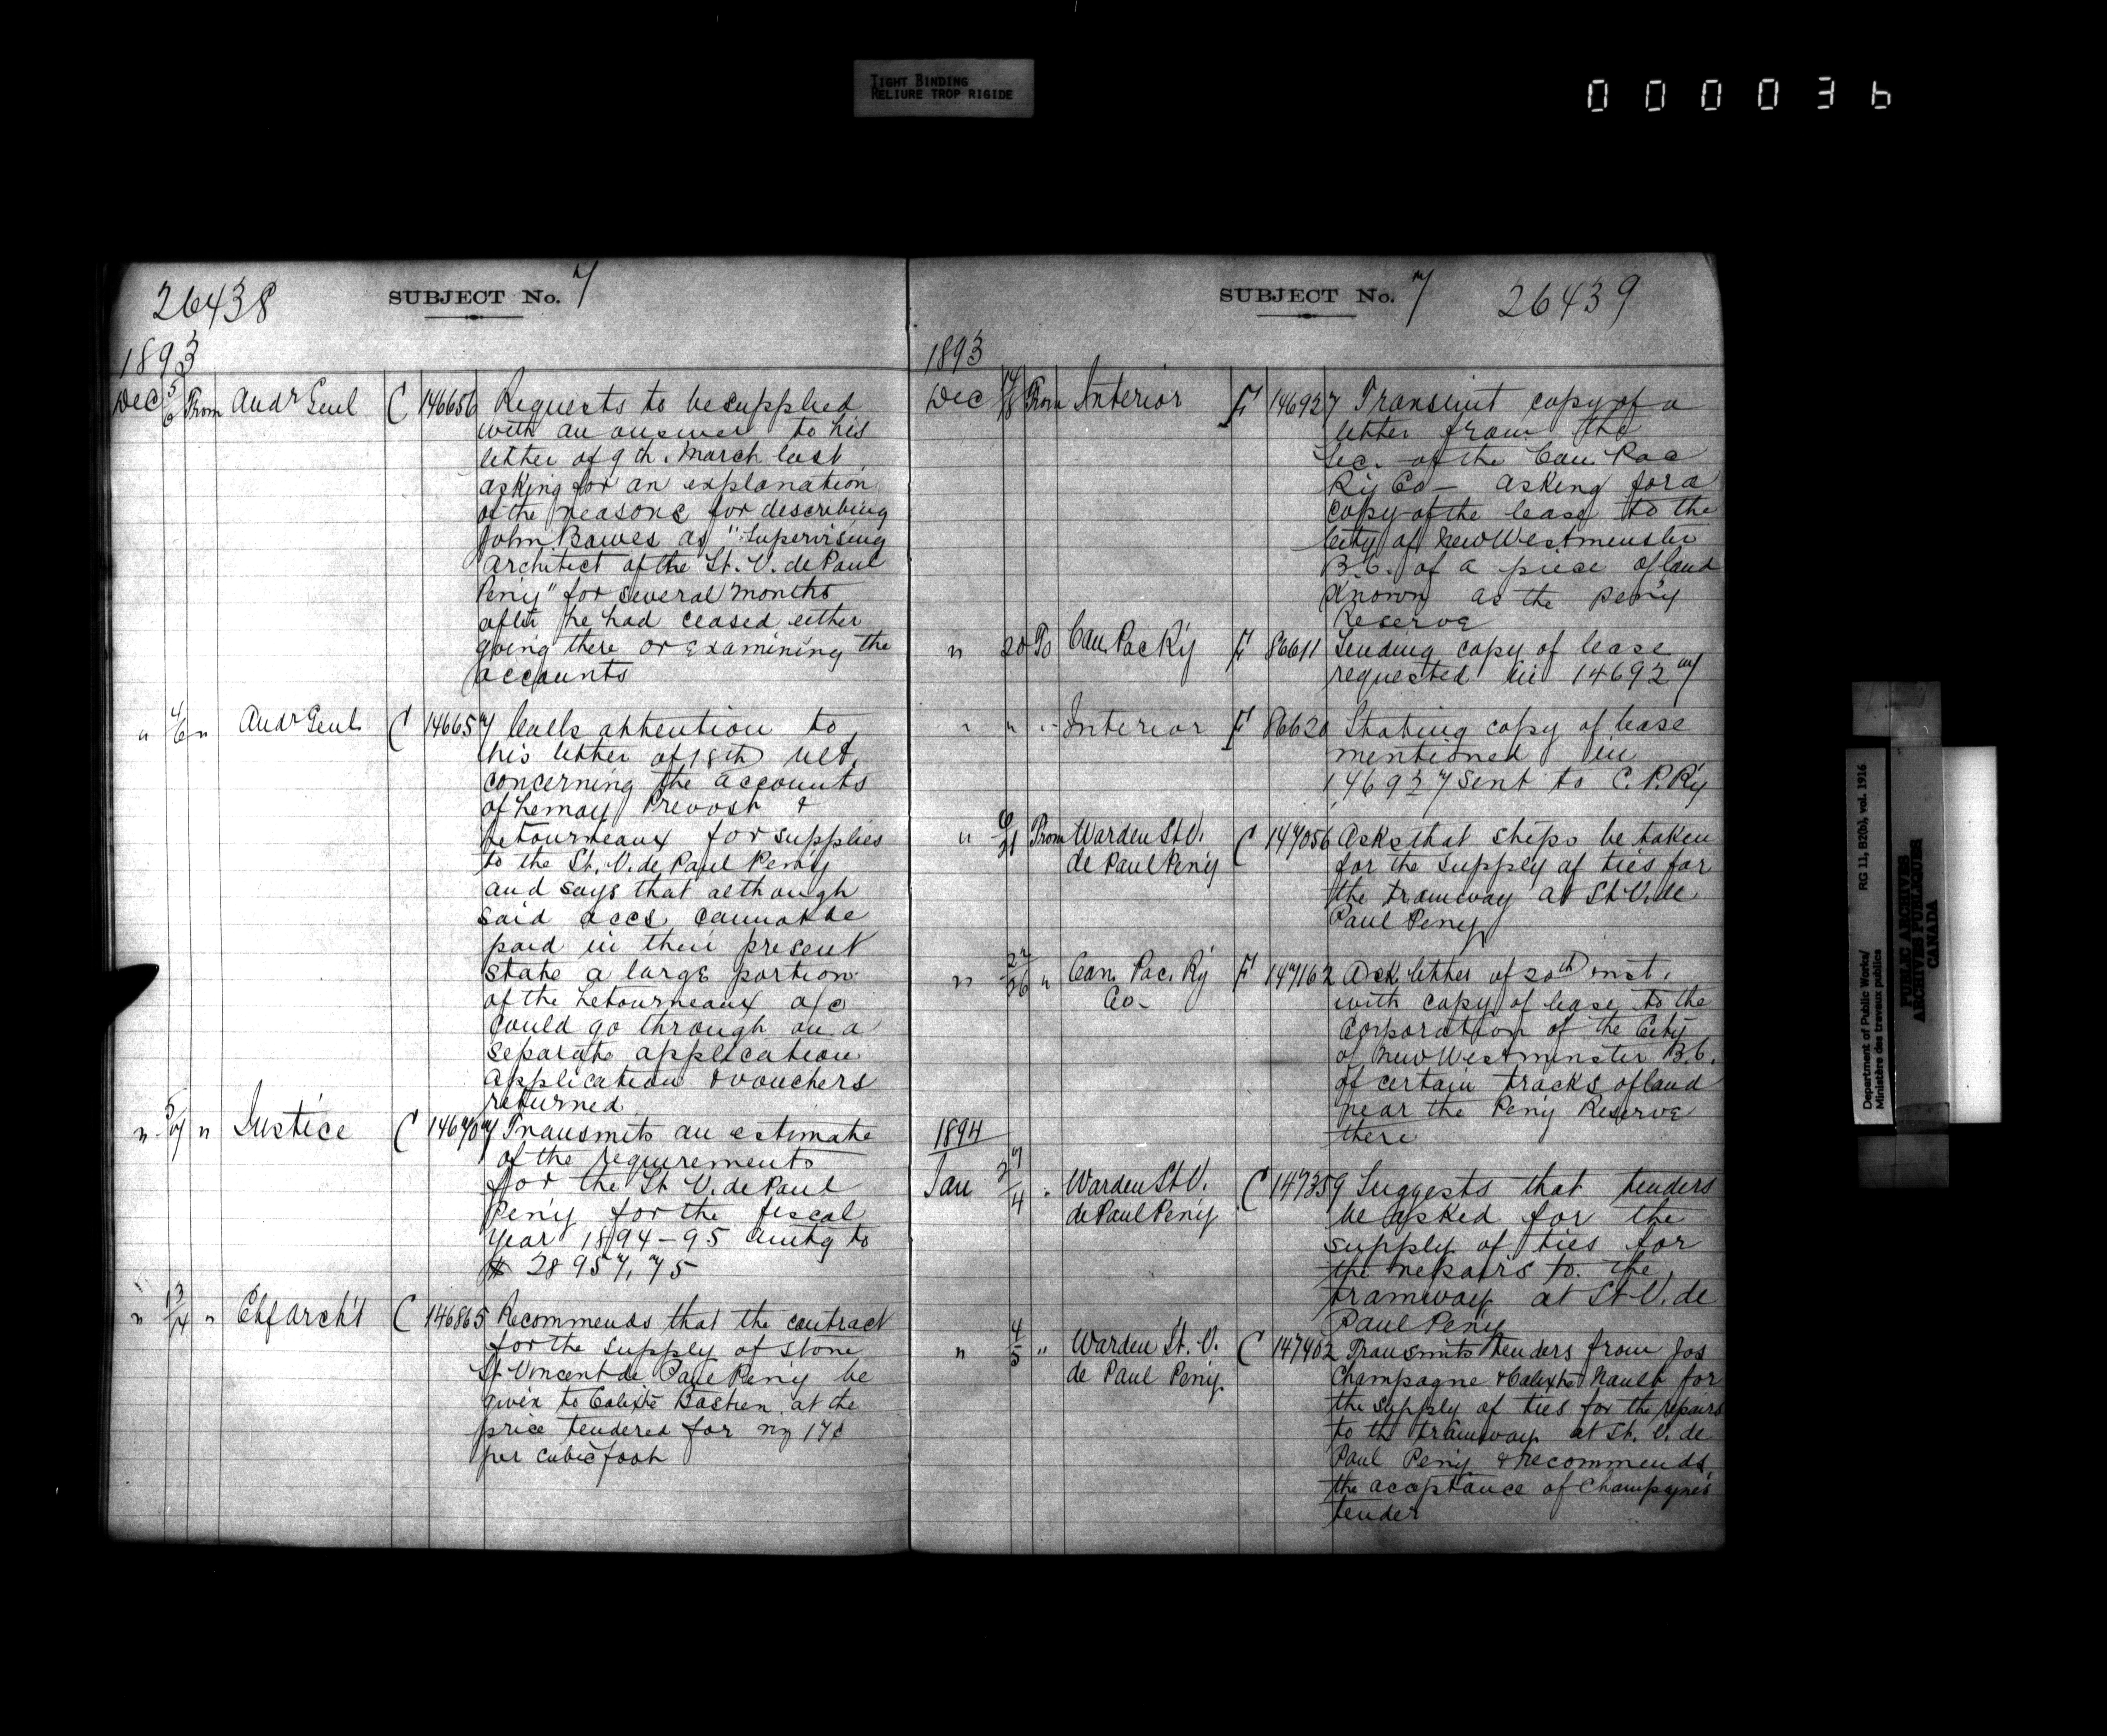 TIGHT BINDING
RELIURE TROP RIGIDE
000036
26438
SUBJECT No. 7
1893
Dec 5/6 From Audr Genl C 146656 Requests to be supplied
with an answer to his
letter of 9th. March last
asking for an explanation
of the reasons for describing
John Bowes as "Supervising
Architect of the St. V. de Paul
Peny" for several months
after he had ceased either
going there or examining the
accounts
" 4/6 " Audr Genl C 146657 Calls attention to
his letter of 18th ult.
concerning the accounts
of Lemay Prevost &
Letourneaux for supplies
to the St. V. de Paul Peny
and says that although
said accs cannot be
paid in their present
state a large portion
of the Letourneaux a/c
could go through on a
separate application
application & vouchers
returned
" 5/7 " Justice C 146707 Transmits an estimate
of the requirements
for the St V. de Paul
Peny for the fiscal
year 1894-95 amtg to
$ 28957,75
" 13/14 " Chf Arch't C 146865 Recommends that the contract
for the supply of stone
St Vincent de Paul Peny be
given to Calixte Bastien at the
price tendered for 17¢
per cubic foot
SUBJECT No. 7 26439
1893
Dec 14/18 From Interior F 146927 Transmit copy of a
letter from the
Sec. of the Can. Pac
Ry Co - asking for a
copy of the lease to the
City of New Westminster
B.C. of a piece of land
known as the Peny
Reserve
" 20 To Can Pac Ry F 86611 Sending copy of lease
requested in 146927
" " " Interior F 86620 Stating copy of lease
mentioned in
146927 sent to C.P.Ry
" 6/21 From Warden St V. C 147056 Asks that steps be taken
de Paul Peny for the supply of ties for
the tramway at St V. de
Paul Peny
" 22/26 " Can. Pac. Ry F 147162 Ack letter of 20th inst.
Co- with copy of lease to the
Corporation of the City
of New Westminster B.C.
of certain tracks of land
near the Peny Reserve
there
1894
Jan 27/4 " Warden St V. C 147359 Suggests that tenders
de Paul Peny be asked for the
supply of ties for
the repairs to the
tramway at St V. de
Paul Peny
" 4/5 " Warden St. V. C 147402 Transmits tenders from Jos
de Paul Peny Champagne & Calixte Nault for
the supply of ties for the repairs
to the tramway at St. V. de
Paul Peny & recommends
the acceptance of Champagne's
tender
Department of Public Works/ RG 11, B2(b), vol. 1916
Ministère des travaux publics
PUBLIC ARCHIVES
ARCHIVES PUBLIQUES
CANADA